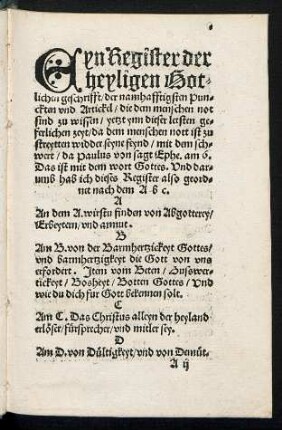 Eyn Register der
heyligen Got-
lichen geschrifft/ der namhafftigsten Pun-
ckten vnd Artickel/ die dem menschen not
sind zu wissen/ yetzt ynn dieser letsten ge-
ferlichen zeyt/ da dem menschen nott ist zu
streytten widder seyne feynd/ mit dem sch-
wert/ da Paulus von sagt Ephe. am 6.
Das ist mit dem wort Gottes. Vnd dar-
umb hab ich dieses Register also geord-
net nach dem A b c.
A
An dem A. wirstu finden von Abgotterey/
Erbeyten/ vnd armut.
B
Am B. von der Barmhertzickeyt Gottes/
vnd barmhertzigkeyt die Gott von vns
erfordert. Item vom Beten/ Busswer-
tickeyt/ Bossheyt/ Botten Gottes/ Vnd
wie du dich fur Gott bekennen solt.
C
Am C. Das Christus alleyn der heyland
erlöser/ fürsprecher/ vnd mitler sey.
D
Am D. von Dültigkeyt/ vnd von Demüt.
A ij